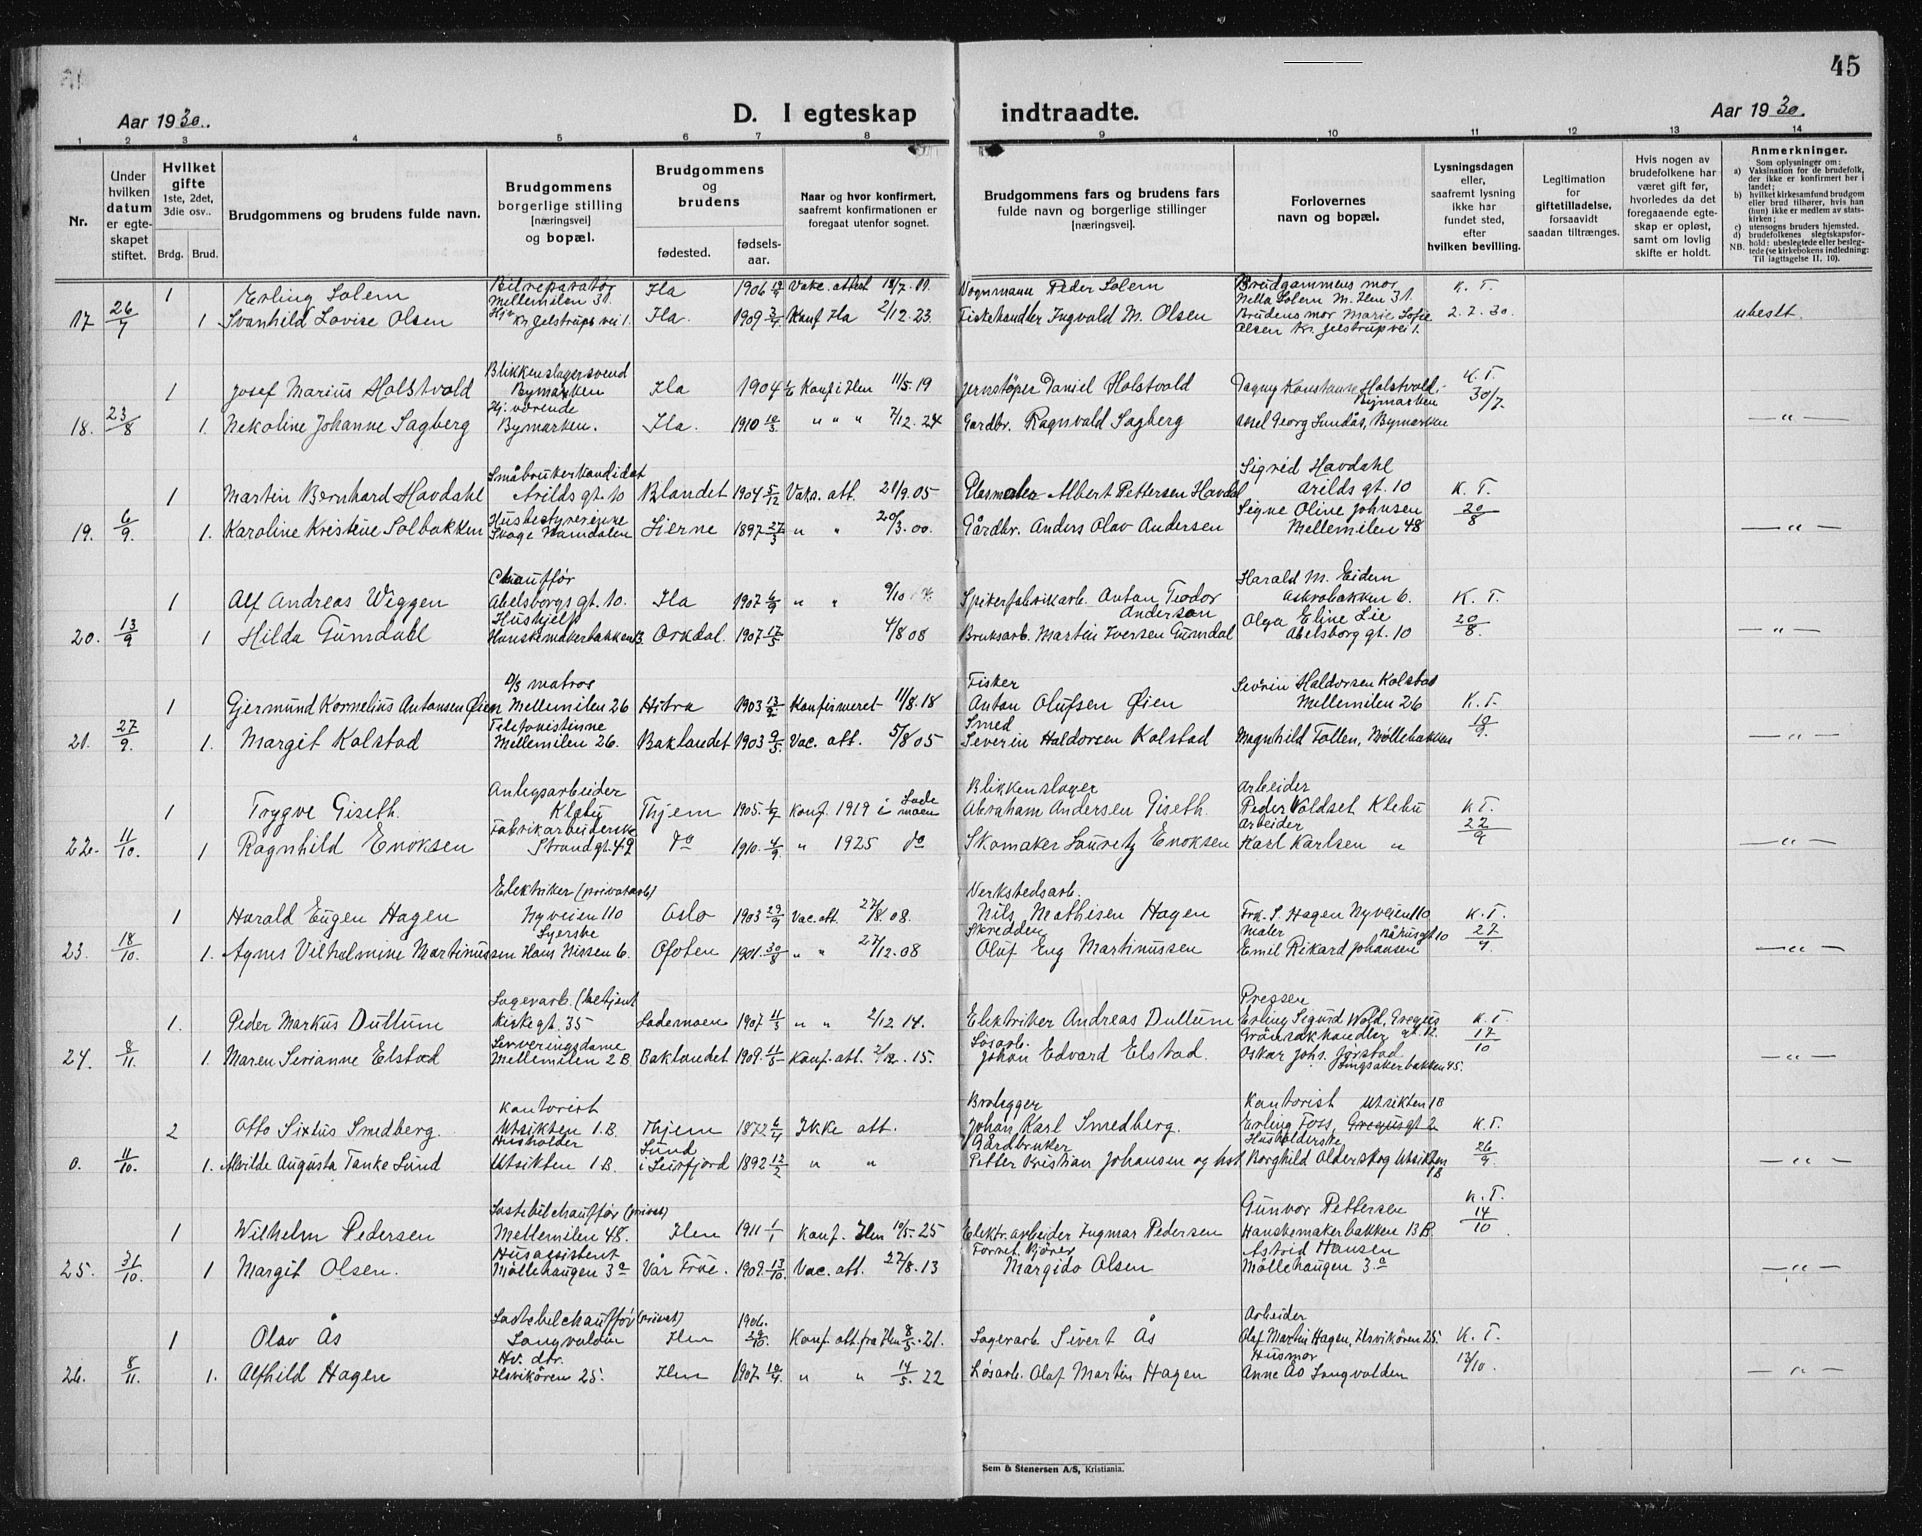 45
Aar 1930.
D. I egteskap indtraadte.
Aar 1930.
1 2 3 4 5 6 7 8 9 10 11 12 13 14
Nr.
Under hvilken datum er egteskapet stiftet.
Hvilket gifte 1ste, 2det, 3die osv..
Brdg. Brud.
Brudgommens og brudens fulde navn.
Brudgommens borgerlige stilling [næringsvei] og bopæl.
Brudgommens og brudens
fødested. fødselsaar.
Naar og hvor konfirmert, saafremt konfirmationen er foregaat utenfor sognet.
Brudgommens fars og brudens fars fulde navn og borgerlige stillinger [næringsvei].
Forlovernes navn og bopæl.
Lysningsdagen eller, saafremt lysning ikke har fundet sted, efter hvilken bevilling.
Legitimation for giftetilladelse, forsaavidt saadan tiltrænges.
Hvis nogen av brudefolkene har været gift før, hvorledes da det foregaaende egteskap er opløst, samt om lovlig skifte er holdt.
Anmerkninger.
Som oplysninger om:
a) Vaksination for de brudefolk, der ikke er konfirmert her i landet;
b) hvilket kirkesamfund brudgom eller brud tilhører, hvis han (hun) ikke er medlem av statskirken;
c) utensogns bruders hjemsted.
d) brudefolkenes slegtskapsforhold: ubeslegtede eller beslegtede (se kirkebokens indledning:
NB. Til iagttagelse II, 10).
Bilreparatør Brudgommens mor
1 Erling Solem Mellemilen 31. Ila 1906 Vakc. attest 18/7. 11. Vognmann Peder Solem Nella Solem M. Ilen 31. K. T.
17 26/7 1 Svanhild Lovise Olsen Kr. Jelstrups vei 1. Ila. 1909 Konf Ila 2/12. 23. Fiskehandler Ingvald M. Olsen Brudens mor Marie Sofie Olsen Kr. Jelstrup vei 1. 2. 7. 30. ubeslt.
Blikkenslagersvend
1 Josef Marius Holstvold Bymarken Ila 1904 Konf i Ilen 11/5 19 Jernstøper Daniel Holstvold Dagny Konstanse Holstvold Bymarken K. T. 30/7.
18. 23/8 1. Nekoline Johanne Sagberg Hj. værende Bymarken. Ila. 1910 " " " 7/12. 24 Gårdbr. Ragnvald Sagberg Georg Sundås, Bymarken —"—
Småbrukerkandidat Sigrid Havdahl
1 Martin Bernhard Havdahl Arilds gt. 10 Blandet 1904 5/12 Vaks. att. 21/9. 05 Albert Pettersen Havdal Arilds gt. 10 K. T.
19. 6/9. 1. Karoline Kristine Solbakken Husbestyrerinne Namdalen Lierne 1897 27/3 " " 20/3. 00. Gårdbr. Anders Olav Andersen Signe Oline Johnsen Mellemilen 48 20/8 —"—
Chauffør Harald M. Eidem
1 Alf Andreas Weggen Abelsborgs gt. 10. Ila 1907 6/9 " " 9/10 Spikerfabrikarb. Anton Teodor Anderson Asbrobakken 6. K. T.
20. 13/9 1 Hilda Gumdahl Hushjelp Hanskemakerbakken B. Orkdal. 1907 17/5 4/8 08 Bruksarb. Martin Iversen Gumdal Olga Eline Lie Abelsborg gt. 10 20/8. —"—
D/S matros Fisker Severin Haldorsen Kolstad
1 Gjermund Kornelius Antonsen Øien Mellemilen 26 Hitra 1903 Konfirmeret 11/8. 18 Anton Olufsen Øien Mellemilen 26 K. T.
21. 27/9. 1. Margit Kolstad Telefonistinne Mellemilen 26. Baklandet 1903 9/3 Vac. att. 5/8 05 Smed Severin Haldorsen Kolstad Magnhild Follen, Møllebakken 10/9. —"—
Anlegsarbeider Blikkenslager Arbeider
1 Trygve Giseth. Klebu Thjem 1905 Konf. 1919 i Lademoen Abraham Andersen Giseth. Peder Voldset Klebu K T.
22. 11/10. 1 Ragnhild Enoksen Fabrikarbeiderske Strandgt. 49 do 1910. 4/9. " 1925 do Skomaker Lauretz Enoksen Arbeider Karl Karlsen " 22/9 —"—
Elektriker (privatarb) Verkstedsarb.
1 Harald Eugen Hagen Nyveien 110 Oslo 1903 29/9 Vac. att. 27/8. 08. Nils Mathisen Hagen Frk. S. Hagen Nyveien 110 K. T.
23. 18/10. 1. Agnes Vilhelmine Martinussen Syerske Hans Nissen 6. Ofoten 1901. 30/8 " " 27/12. 08 Skredder Oluf Eng Martinussen Maler Emil Rikard Johansen 27/9 —"—
Lagerarb. (betjent Presser
1. Peder Markus Dullum Kirkegt. 35 Lademoen 1907 11/3 " " 2/12 14. Elektriker Andreas Dullum Erling Sigurd Wold, Gregus gt. 12. K. T.
24. 8/11. 1. Maren Serianne Elstad Serveringsdame Mellemilen 2 B Baklandet 1909. 11/5 Konf. att. 15. Løsarb. Johan Edvard Elstad. Grönsakhandler Oskar Johs. Jørstad Singsakerbakken 45. 17/10 —"—
Kontorist Brolegger Kontorist Utsikten 1B
2 Otto Sixtus Smedberg. Utsikten 1. B. Thjem 1872 6/4 Ikke att. Johan Karl Smedberg. Erling Foss, Gregusgt 2 K. T.
0. 11/10. 1. Alvilde Augusta Tanke Lund Husholder Utsikten 1 B. Lund i Leirfjord 1892 12/2 " " Gårdbruker Petter Kristian Johansen og hst Husholderske Borghild Olderskog Utsikten 1B 26/9. —"—
Lastebilchauffør (privat) Gunvor Pettersen
1 Wilhelm Pedersen Mellemilen 48. Ilen 1911 1/1 Konf. Ilen 10/5. 25 Elektr. arbeider Ingmar Pedersen Hanskemakerbakken 13 B. K. T. 14/10.
25. 31/10. 1. Margit Olsen. Husassistent Möllehaugen 3a Vår Frue. 1909. 13/10. Vac. att. 27/8. 13 Margido Olsen Astrid Hansen Möllehaugen 3a —"—
Lastebilchauffør (privat) Arbeider
1 Olav Ås Ilen 1906. Konf. att. fra Ilen 8/5. 21. Lagerarb. Sivert Ås Olaf Martin Hagen, Ilsvikören 25. K. T.
26. 8/11. 1. Alfhild Hagen Hv. dtr. Ilsvikören 25. Ilen 1907. " " 14/5. 22 Løsarb. Olaf Martin Hagen Husmor Anne Ås 13/10. —"—
Sem & Stenersen A/S, Kristiania.